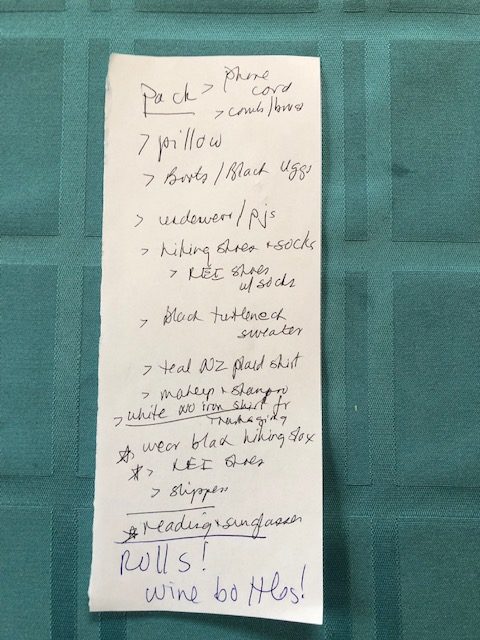 Pack > phone
cord
> comb/brush
> pillow
> Boots/Black Uggs
> underwear/pjs
> hiking shoes + socks
> REI shoes
w/ socks
> black turtleneck
sweater
> teal NZ plaid shirt
> makeup + shampoo
> white no iron shirt fr
Thanksgiving
☆ wear black hiking slax
☆ > REI shoes
> slippers
☆ reading + sunglasses
ROLLS!
wine bottles!